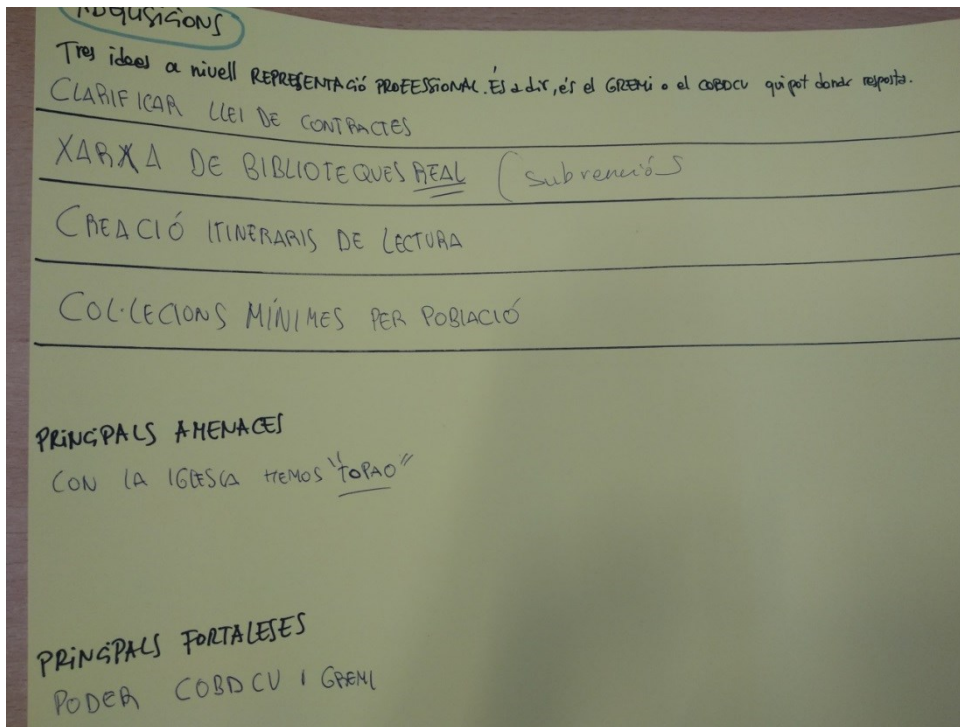 ADQUSICIONS
Tres idees a nivell REPRESENTACIÓ PROFESSIONAL. És a dir, és el GREMI o el COBDCV qui pot donar resposta.
CLARIFICAR LLEI DE CONTRACTES
XARXA DE BIBLIOTEQUES REAL (subvenciós
CREACIÓ ITINERARIS DE LECTURA
COL·LECIONS MÍNIMES PER POBLACIÓ
PRINCIPALS AMENACES
CON LA IGLESIA HEMOS "TOPAO"
PRINCIPALS FORTALESES
PODER COBDCV I GREMI